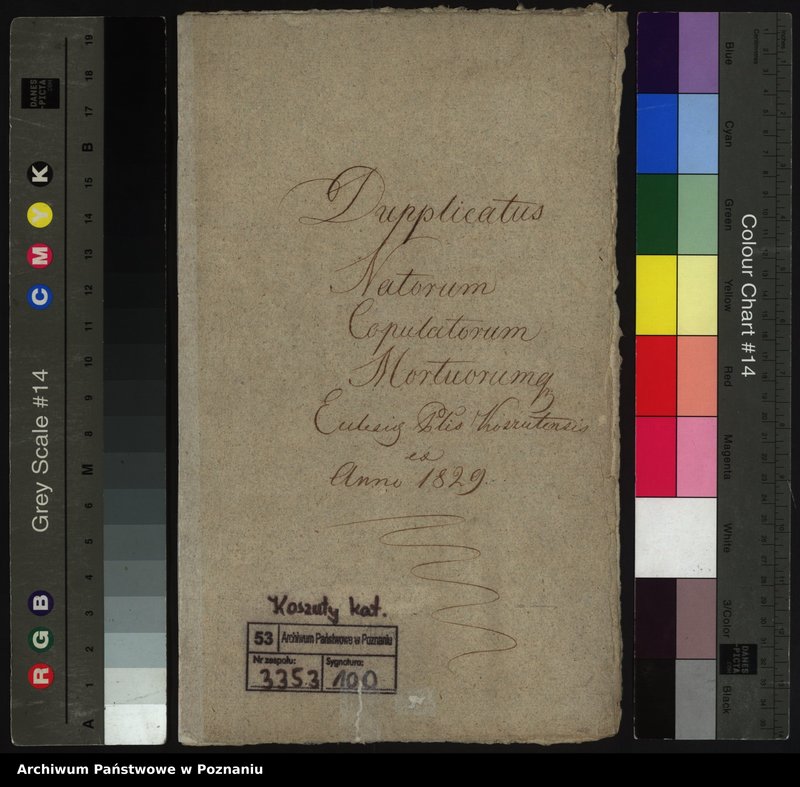 Dupplicatus
Natorum
Copulatorum
Mortuorumq
Ecclesiæ Plis Koszutensis
ex
Anno 1829
Koszuty kat.
53 Archiwum Państwowe w Poznaniu
Nr zespołu: Sygnatura:
3353 100
Grey Scale #14
DANES
-PICTA
.COM
R G B C M Y K
A 1 2 3 4 5 6 M 8 9 10 11 12 13 14 15 B 17 18 19
Colour Chart #14
Blue
Cyan
Green
Yellow
Red
Magenta
White
3/Color
Black
Centimetres
Inches
DANES
-PICTA
.COM
Archiwum Państwowe w Poznaniu